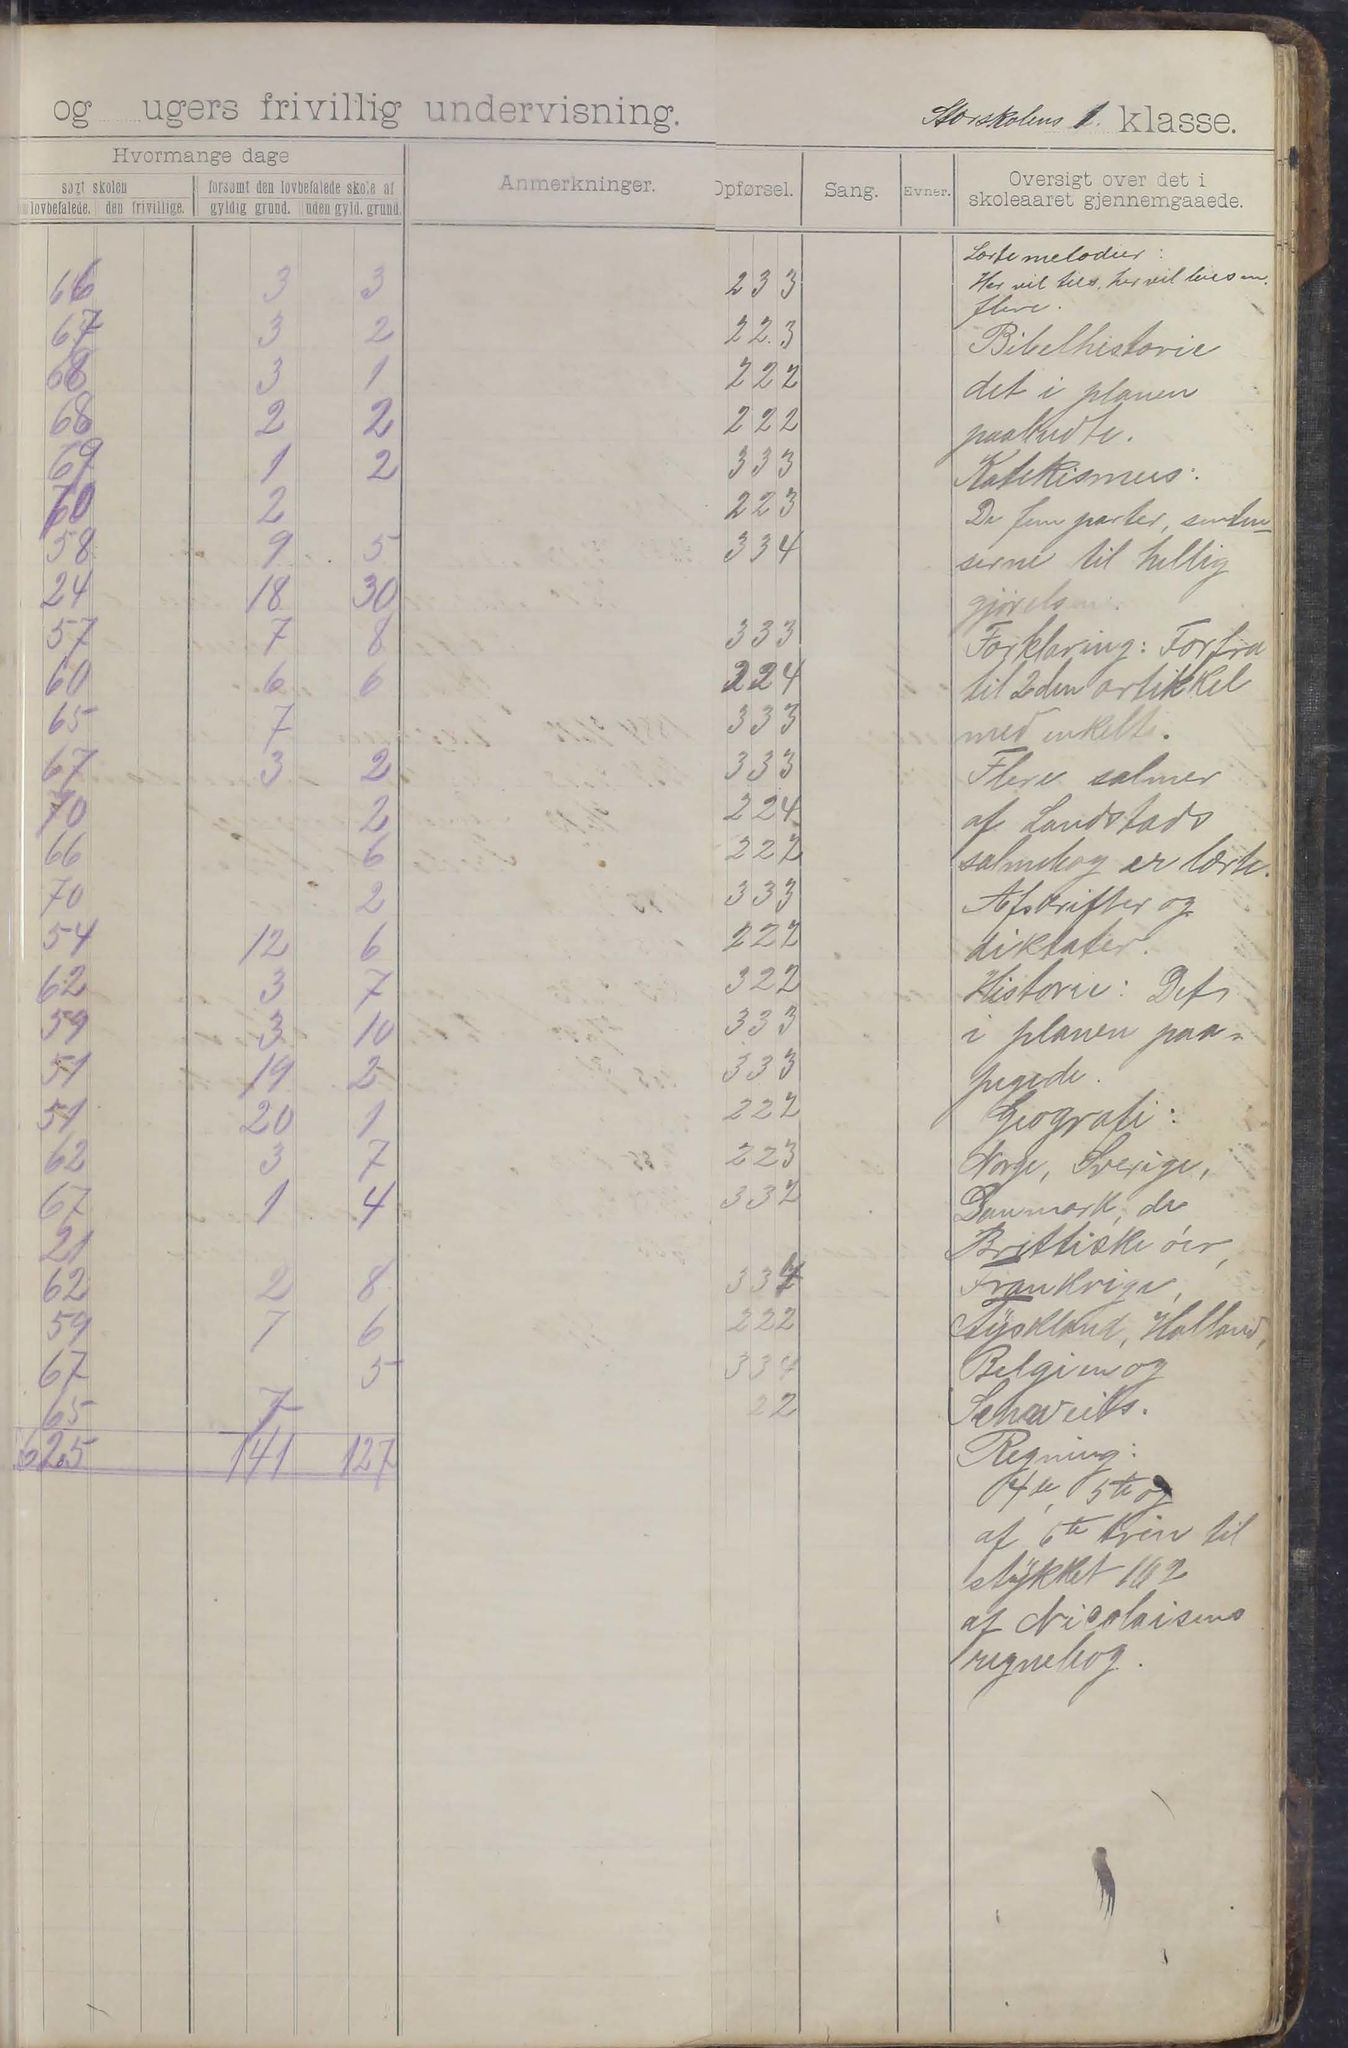 og ugers frivillig undervisning. Storskolens 1. klasse.
Hvormange dage
søgt skolen
forsømt den lovbefalede skole af
lovbefalede. den frivillige. gyldig grund. uden gyld. grund.
Anmerkninger. Opførsel. Sang. Evner. Oversigt over det i
skoleaaret gjennemgaaede.
66 3 3 2 3 3
67 3 2 2 2 3
68 3 1 2 2 2
68 2 2 2 2 2
69 1 2 3 3 3
70 2 2 2 3
58 9 5 3 3 4
24 18 30
57 7 8 3 3 3
60 6 6 2 2 4
65 7 3 3 3
67 3 2 3 3 3
70 2 2 2 4
66 6 2 2 2
70 2 3 3 3
54 12 6 2 2 2
62 3 7 3 2 2
59 3 10 3 3 3
51 19 2 3 3 3
51 20 1 2 2 2
62 3 7 2 2 3
67 1 4 3 3 2
21
62 2 8 3 3 4
59 7 6 2 2 2
67 5 3 3 4
65 7 2 2
625 141 127
Lærte melodier:
Her vil ties, her vil bies m.
flere.
Bibelhistorie
det i planen
paabudte.
Katekismus:
De fem parter, senten=
serne til hellig
gjørelsen.
Forklaring: Forfra
til 2den artikkel
med enkelte.
Flere salmer
af Landstads
salmebog er lærte.
Afskrifter og
diktater.
Historie: Det
i planen paa-
pegede.
Geografi:
Norge, Sverige,
Danmark, de
Brittiske øer,
Frankrige,
Tyskland, Holland,
Belgien og
Schweits.
Regning:
4de, 5te og
af 6te trin til
stykket 102
af Nicolaisens
regnebog.